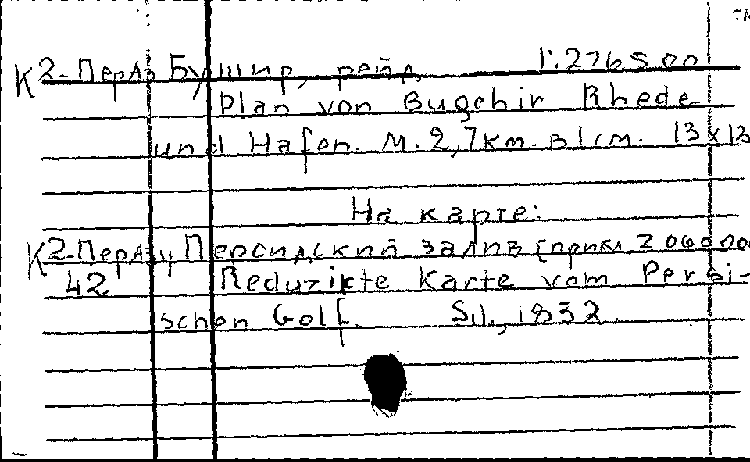 К2-Перз Бушир, рейд. 1:276500
Plan von Buschir Rhede
und Hafen. М. 2,7км в 1 см. 13х13
На карте:
К2-Перз Персидский залив [прибл. 2 060 000
42 Reduzirte Karte vom Persi-
schen Golf. S.l., 1832